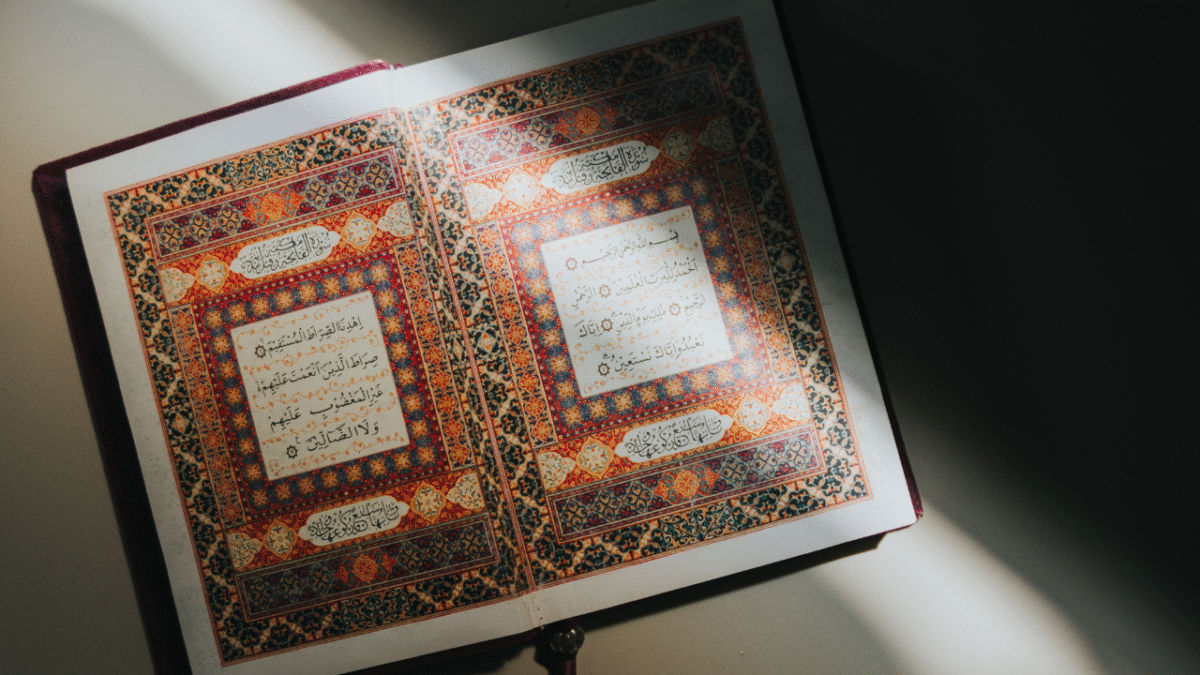 سُورَةُ الْفَاتِحَةِ مَكِّيَّةٌ
بِسْمِ اللهِ الرَّحْمٰنِ الرَّحِيْمِ
اَلْحَمْدُ لِلّٰهِ رَبِّ الْعٰلَمِيْنَ الرَّحْمٰنِ
الرَّحِيْمِ مٰلِكِ يَوْمِ الدِّيْنِ اِيَّاكَ
نَعْبُدُ وَاِيَّاكَ نَسْتَعِيْنُ
سُورَةُ الْفَاتِحَةِ مَكِّيَّةٌ
اِهْدِنَا الصِّرَاطَ الْمُسْتَقِيْمَ
صِرَاطَ الَّذِيْنَ اَنْعَمْتَ عَلَيْهِمْ
غَيْرِ الْمَغْضُوْبِ عَلَيْهِمْ
وَلَا الضَّالِّيْنَ